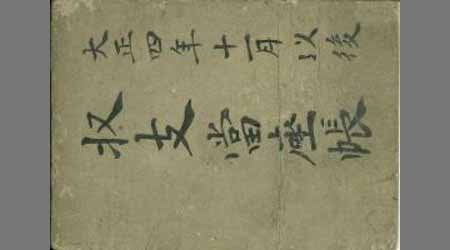 大正四年十一月以後
収支當座帳